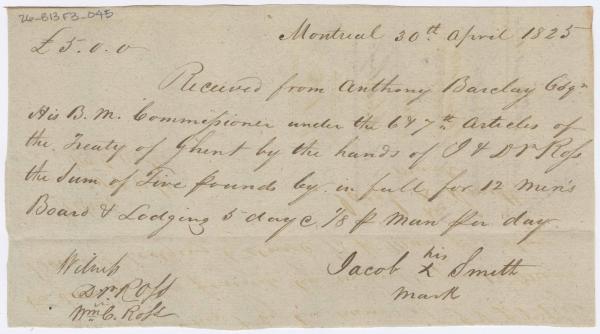 26-B1 F3-045
Montreal 30th April 1825
£ 5. 0. 0
Received from Anthony Barclay Esqr
His B. M. Commissioner under the 6 & 7th Articles of
the Treaty of Ghent by the hands of J & Dd Ross
the Sum of Five pounds Cy. in full for 12 men's
Board & Lodging 5 day @ 1/8 p Man per day.
Witness
Jacob his X Smith
mark
Dd Ross
Wm C. Ross